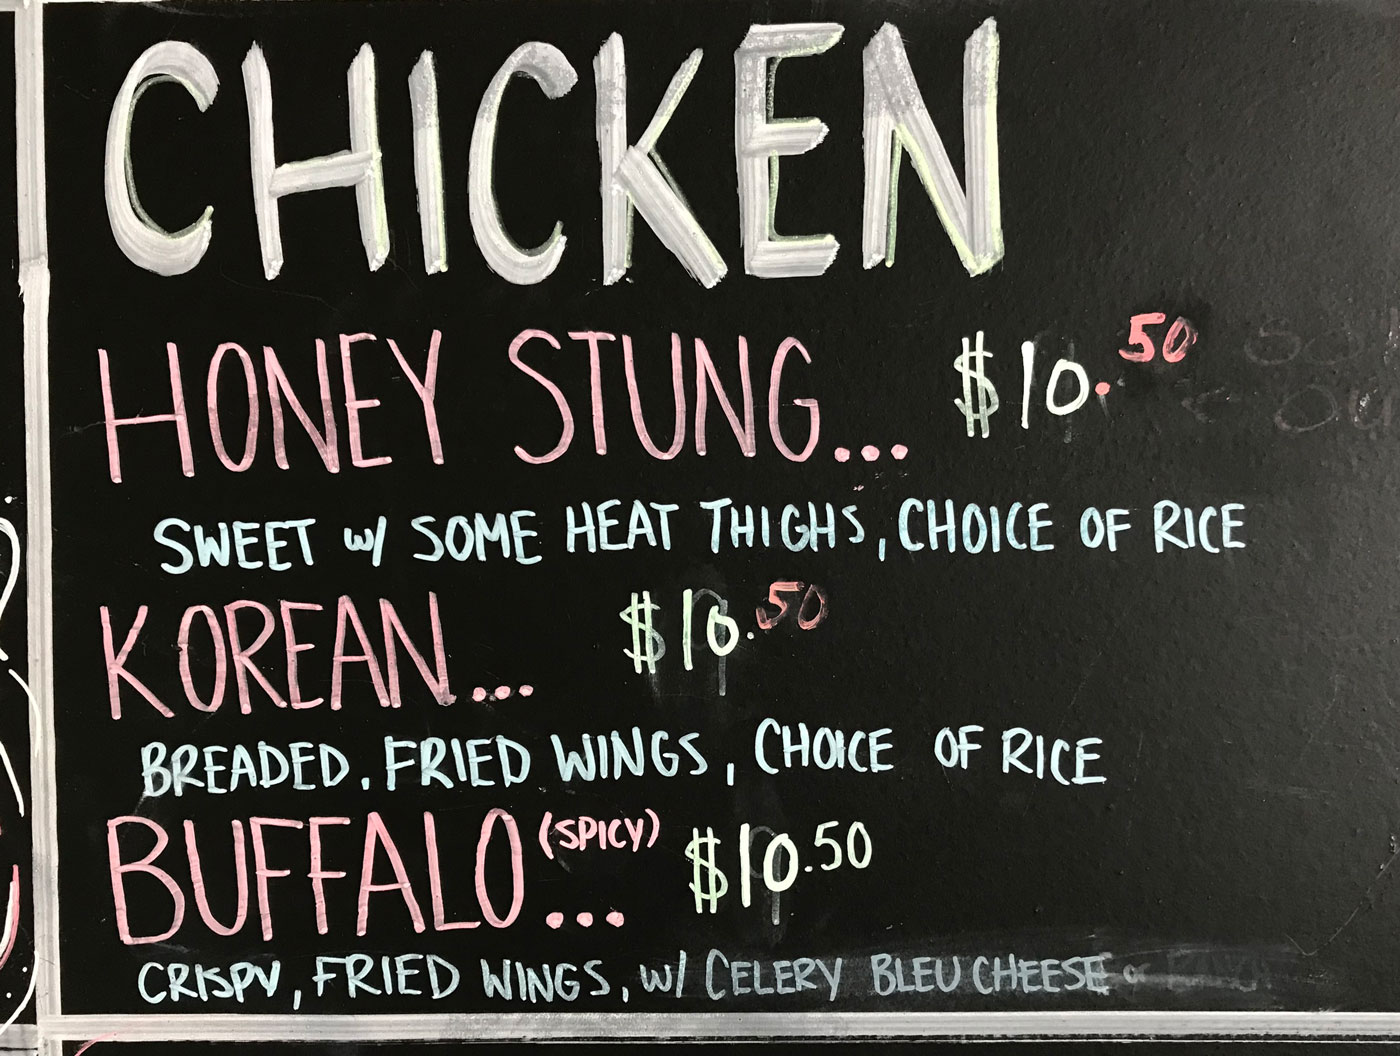 CHICKEN
HONEY STUNG... $10.50
SWEET w/ SOME HEAT THIGHS, CHOICE OF RICE
KOREAN... $10.50
BREADED. FRIED WINGS, CHOICE OF RICE
BUFFALO (SPICY)... $10.50
CRISPY, FRIED WINGS, w/ CELERY BLEU CHEESE